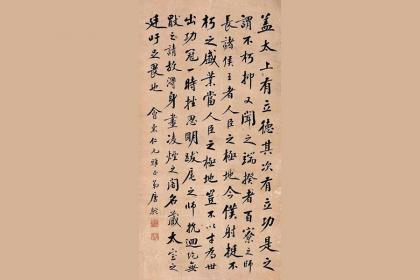 蓋太上有立德其次有立功是之
謂不朽抑又聞之端揆者百寮之師
長諸侯王者人臣之極地今僕射挺不
朽之盛業當人臣之極地豈不以才為世
出功冠一時挫思明跋扈之師抗迴紇無
厭之請故得身畫凌煙之閣名藏太室之
廷吁足畏也 仁兄雅正弟唐駝